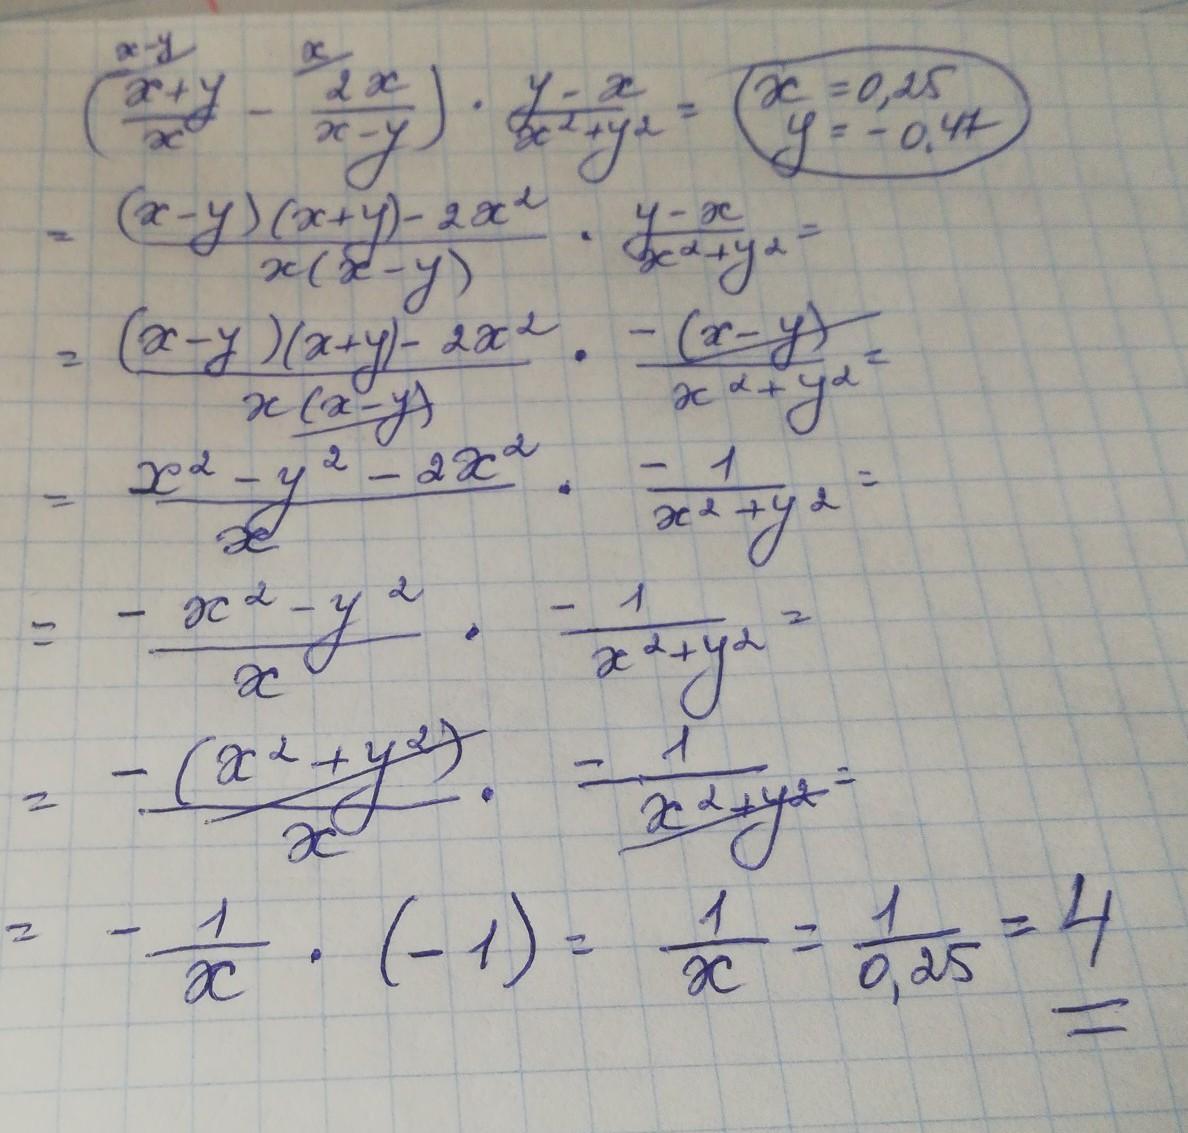 x-y x
(x+y/x - 2x/x-y) · y-x/x²+y² = x = 0,25
y = -0,47
= (x-y)(x+y)-2x²/x(x-y) · y-x/x²+y² =
= (x-y)(x+y)-2x²/x(x-y) · -(x-y)/x²+y² =
= x²-y²-2x²/x · -1/x²+y² =
= -x²-y²/x · -1/x²+y² =
= -(x²+y²)/x · -1/x²+y² =
= -1/x · (-1) = 1/x = 1/0,25 = 4